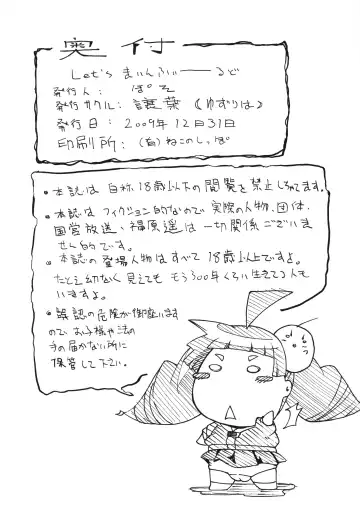 奥付
Let's まいんふぃーるど
発行人: ぱそ
発行サークル: 譲葉《ゆずりは》
発行日: 2009年12月31日
印刷所: (有)ねこのしっぽ
・本誌は自称18歳以下の閲覧を禁止しております。
・本誌はフィクション的なので実際の人物、団体、
国営放送、福原遥は一切関係ございま
せん的です。
・本誌の登場人物はすべて18歳以上ですよ。
たとえ幼なく見えてももう300年くらい生きてる人も
いますよ。
・誤認の危険が御座います
のでお子様や法の
手の届かない所に
保管して下さい。